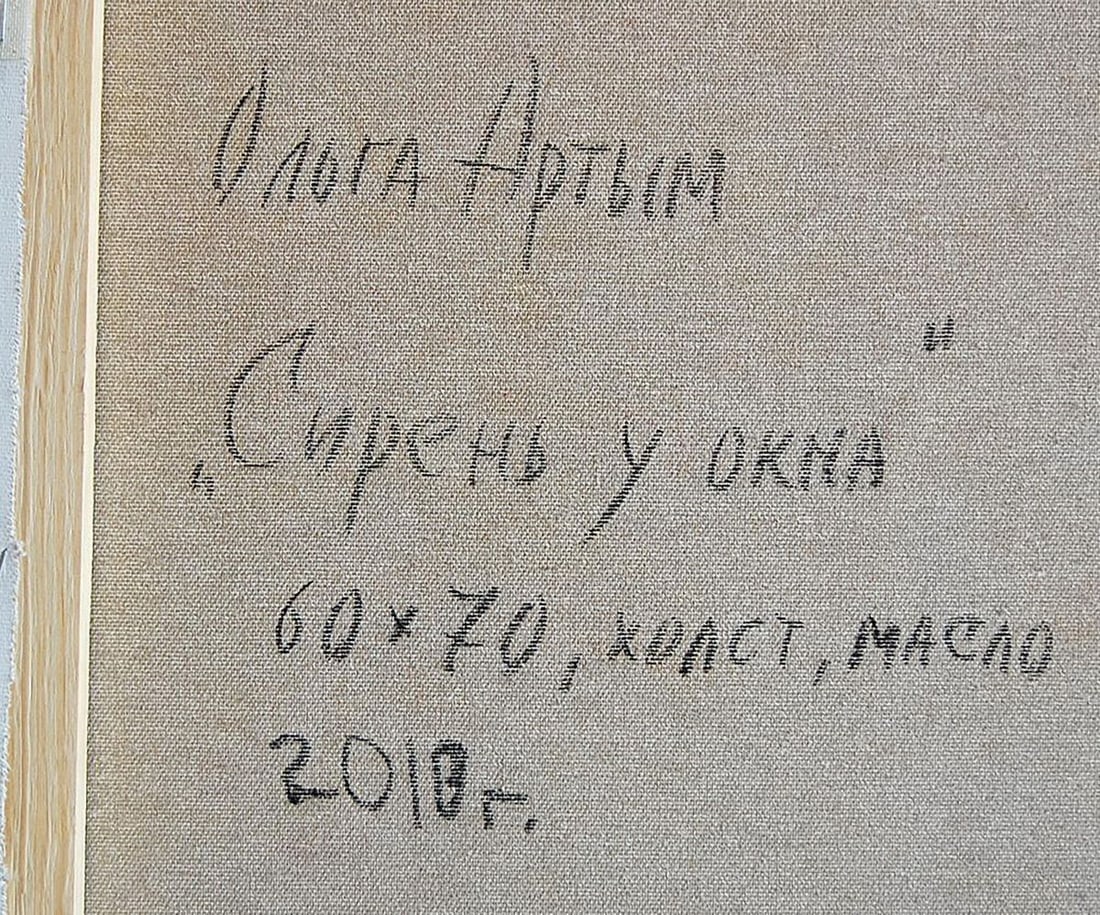 Ольга Артым
„Сирень у окна"
60×70, холст, масло
2018 г.